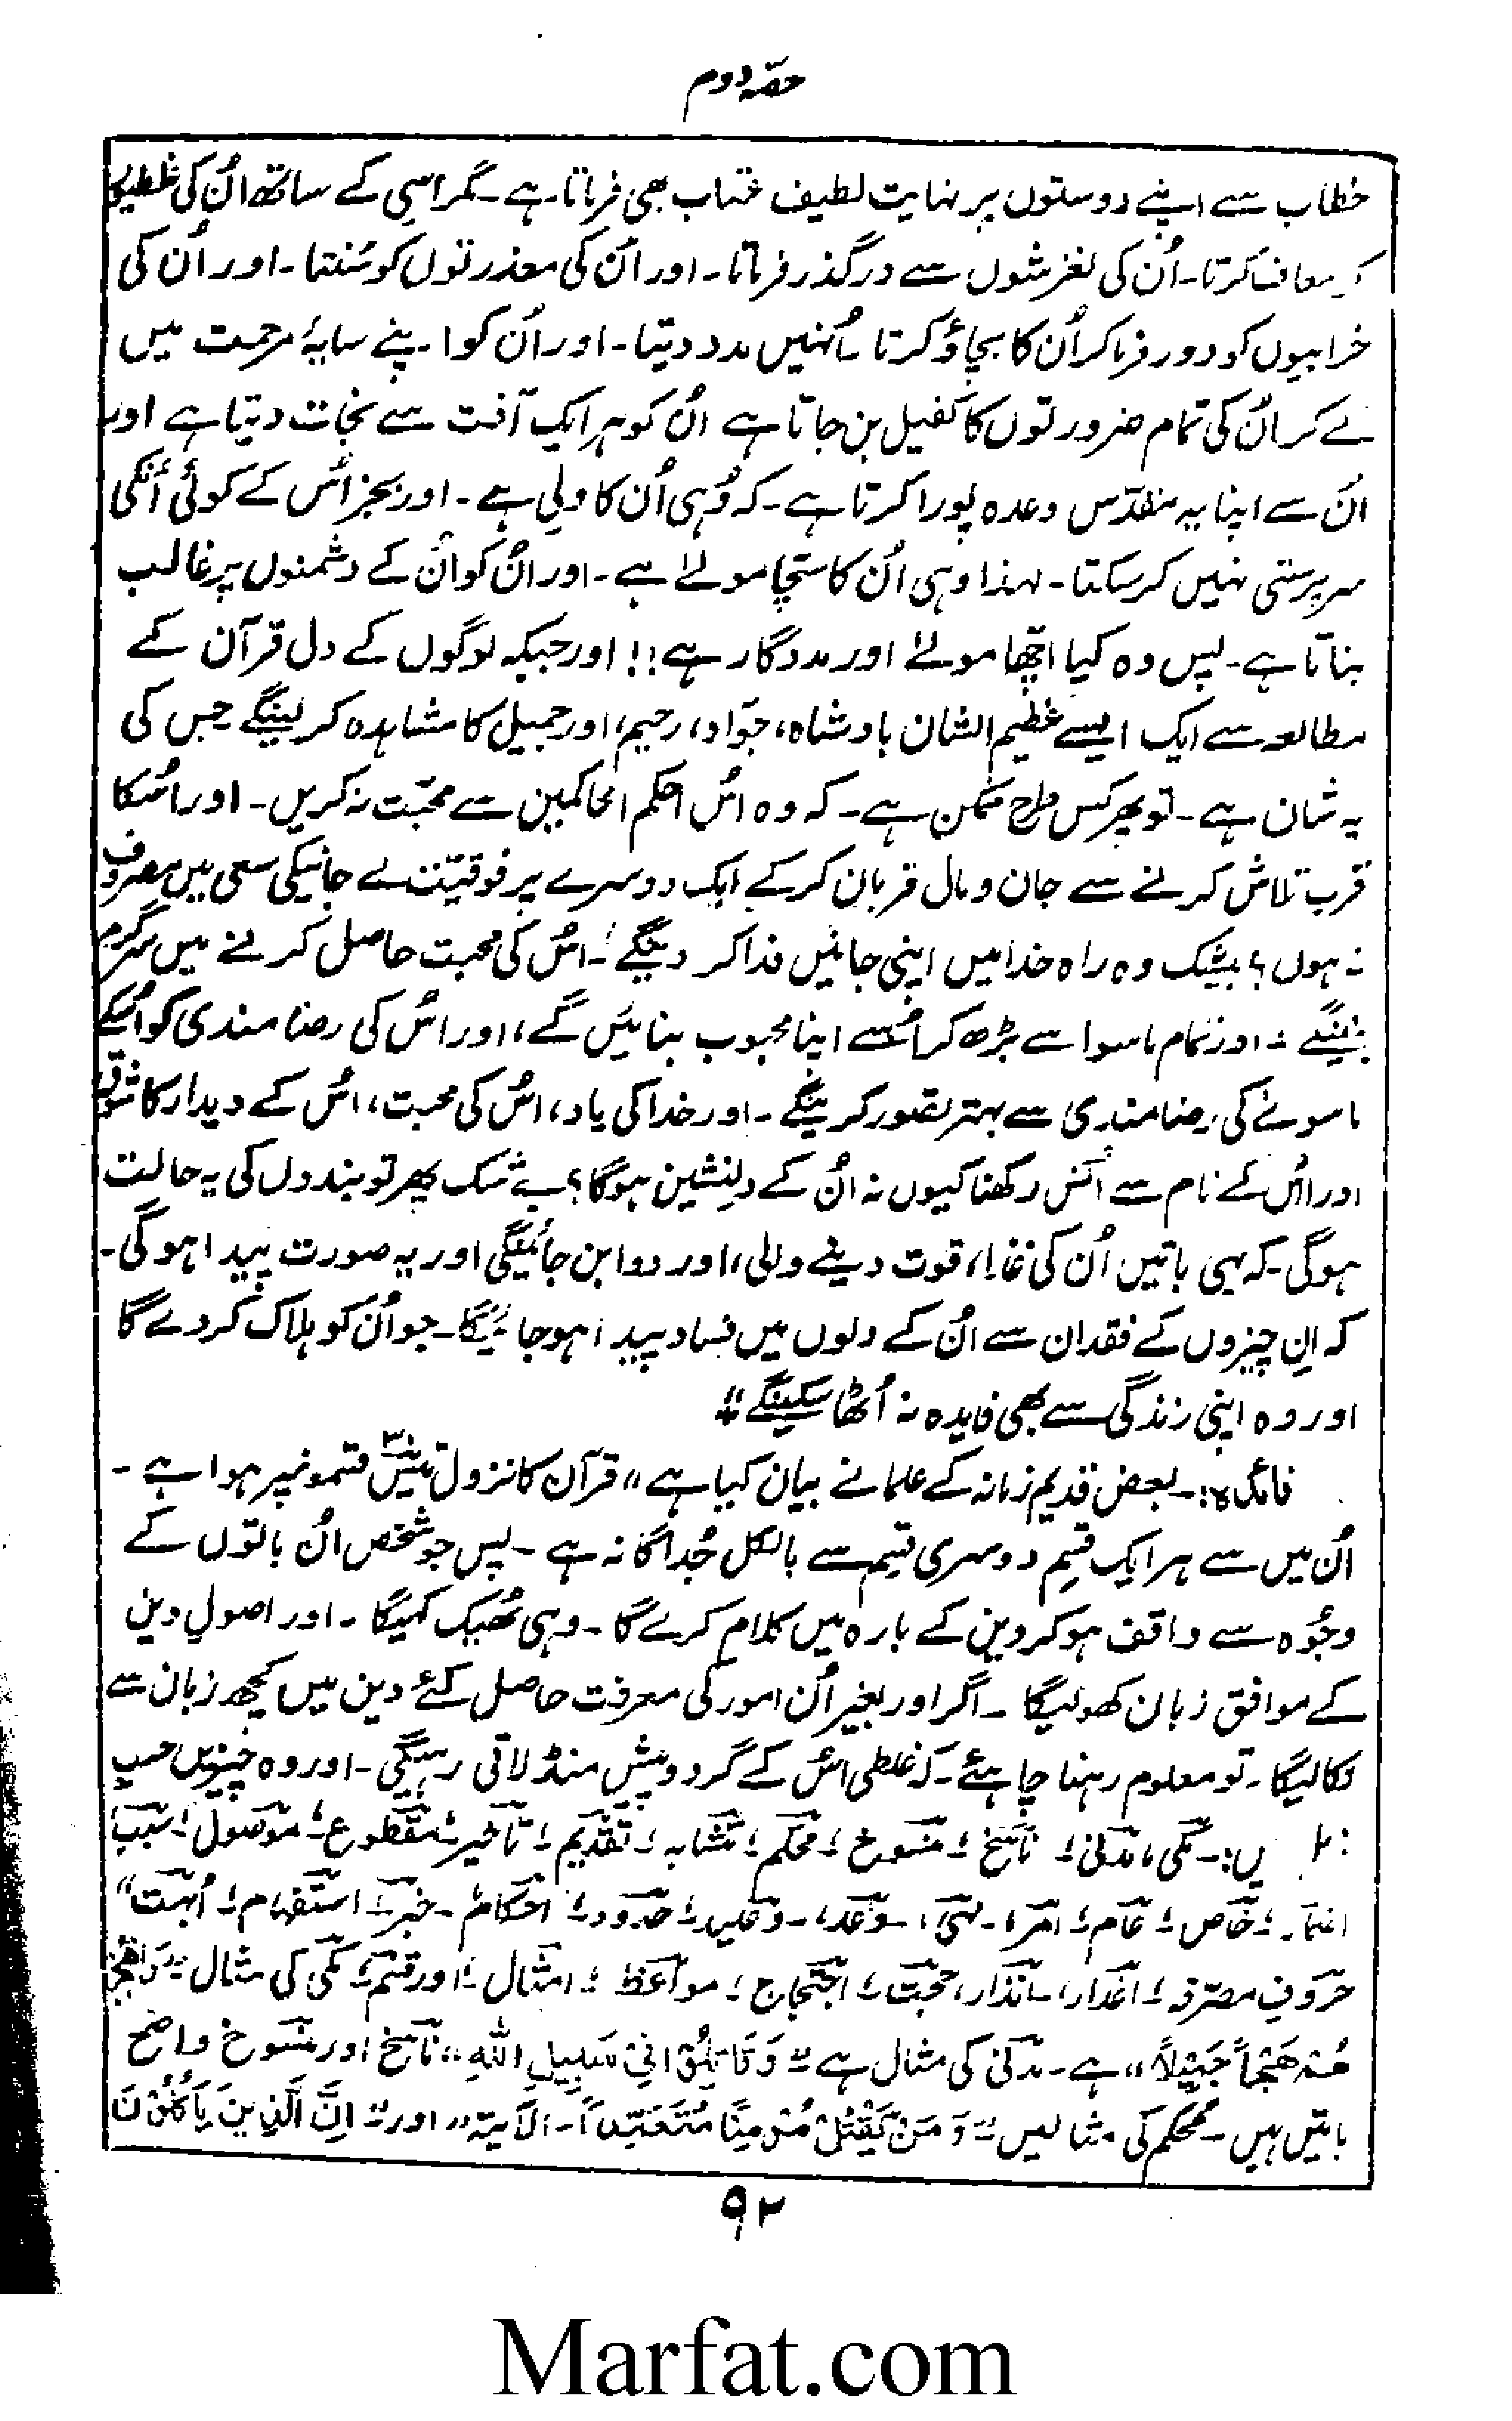 حصہ دوم
خطاب سے اپنے دوستوں پر نہایت لطیف عتاب بھی فرماتا ہے۔ مگر اسی کے ساتھ اُن کی غلطیوں
کو معاف کرتا۔ اُن کی لغزشوں سے درگذر فرماتا۔ اور اُن کی معذرتوں کو سُنتا۔ اور اُن کی
خرابیوں کو دور فرما کر اُن کا بچاؤ کرتا اُنہیں مدد دیتا۔ اور اُن کو اپنے سایۂ مرحمت میں
لے کر اُن کی تمام ضرورتوں کا کفیل بن جاتا ہے اُن کو ہر ایک آفت سے نجات دیتا ہے اور
اُن سے اپنا یہ مقدّس وعدہ پورا کرتا ہے۔ کہ وُہی اُن کا ولی ہے۔ اور بجز اُس کے کوئی اُنکی
سرپرستی نہیں کر سکتا۔ لہذا وہی اُن کا سچّا مولےٰ ہے۔ اور اُن کو اُن کے دشمنوں پر غالب
بناتا ہے۔ پس وہ کیا اچھا مولےٰ اور مددگار ہے!! اور جبکہ لوگوں کے دل قرآن کے
مطالعہ سے ایک ایسے عظیم الشان بادشاہ، جوّاد، رحیم، اور جمیل کا مشاہدہ کر لینگے جس کی
یہ شان ہے۔ تو پھر کس طرح ممکن ہے۔ کہ وہ اُس احکم الحاکمین سے محبّت نہ کریں۔ اور اُسکا
قرب تلاش کرنے سے جان و مال قربان کر کے ایک دوسرے پر فوقیّت لے جانیکی سعی میں مصروف
نہ ہوں؟ بیشک وہ راہ خدا میں اپنی جانیں فدا کر دینگے!۔ اُس کی محبت حاصل کرنے میں سرگرم
بنینگے؛ اور تمام ماسوا سے بڑھ کر اُسے اپنا محبوب بنائیں گے، اور اُس کی رضا مندی کو اُسکے
ماسوےٰ کی رضامندی سے بہتر تصور کرینگے۔ اور خدا کی یاد، اُس کی محبت، اُس کے دیدار کا شوق
اور اُس کے نام سے اُنس رکھنا کیوں نہ اُن کے دلنشین ہوگا؟ بے شک پھر تو بندوں کی یہ حالت
ہوگی۔ کہ یہی باتیں اُن کی غذا، قوت دینے والی، اور دوا بن جائینگی اور یہ صورت پیدا ہوگی۔
کہ اِن چیزوں کے فقدان سے اُن کے دلوں میں فساد پیدا ہو جائیگا۔ جو اُن کو ہلاک کر دے گا
اور وہ اپنی زندگی سے بھی فایدہ نہ اُٹھا سکینگے"
فائدہ:۔ بعض قدیم زمانہ کے علما نے بیان کیا ہے "قرآن کا نزول تیس۳۰ قسموں پر ہوا ہے۔
اُن میں سے ہر ایک قِسم دوسری قِسم سے بالکل جُداگانہ ہے۔ پس جو شخص اُن باتوں کے
وجُوہ سے واقف ہو کر دین کے بارہ میں کلام کرے گا۔ وہی ٹھیک کہیگا۔ اور اصولِ دین
کے موافق زبان کھولیگا۔ اگر اور بغیر اُن امور کی معرفت حاصل کئے دین میں کچھ زبان سے
نکالیگا۔ تو معلوم رہنا چاہئے۔ کہ غلطی اُس کے گرد و پیش منڈلاتی رہیگی۔ اور وہ چیزیں حسبِ
یں:۔ مکی، مدنی، ناسخ، منسوخ، محکم، متشابہ، تقدیم، تاخیر، مقطوع، موصول، سبب
خاص، عام، امر، نہی، وعد، وعید، حدود، احکام، خبر، استفہام، اُبہت"
حروفِ مصرّفہ، اعذار، انذار، حجت، احتجاج، مواعظ، امثال، اور قسم، مکی کی مثال "وَاھْجُرْ
ھُمْ ھَجْراً جَمِیْلاً" ہے۔ مدنی کی مثال ہے "وَقَاتِلُوْا فِیْ سَبِیْلِ اللّٰہِ" ناسخ اور منسوخ واضح
باتیں ہیں۔ محکم کی مثالیں "وَمَنْ یَّقْتُلْ مُؤْمِنًا مُتَعَمِّداً۔ الآیۃ" اور "اِنَّ الَّذِیْنَ یَاْکُلُوْنَ
۹۲
Marfat.com